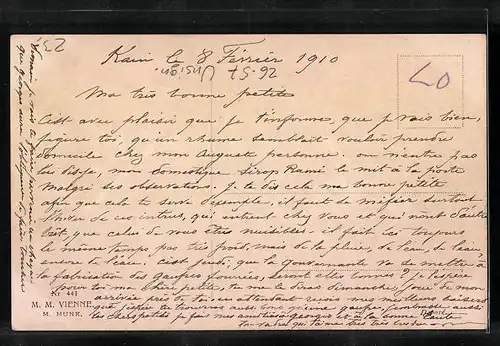 Kain le 8 Février 1910
Ma très bonne petite
C'est avec plaisir que je t'informe, que je vais bien,
figure toi, qu'un rhume semblait vouloir prendre
domicile chez mon Auguste personne. on n'entre pas
lui dis-je, mon domestique Sirop Ramé le mit à la porte
malgré ses observations. Je te dis cela ma bonne petite
afin que cela te serve d'exemple, il faut se méfier surtout
l'hiver de ces intrus, qui entrent chez vous et qui n'ont d'autre
but, que celui de vous être nuisibles. il fait ici toujours
le même temps, pas très froid, mais de la pluie, de l'eau, de l'eau,
encore de l'eau. c'est jeudi, que la Gouvernante va se mettre à
la fabrication des gaufres fourrées, seront elles bonnes? je l'espère
pour toi ma chère petite, tu me le diras dimanche, jour de mon
arrivée près de toi. en attendant reçois mes meilleurs baisers
les chers petits je fais mes amitiés à Georges et à la bonne tante
Nr. 441
M. M. VIENNE
M. MUNK.
26-57
40
23